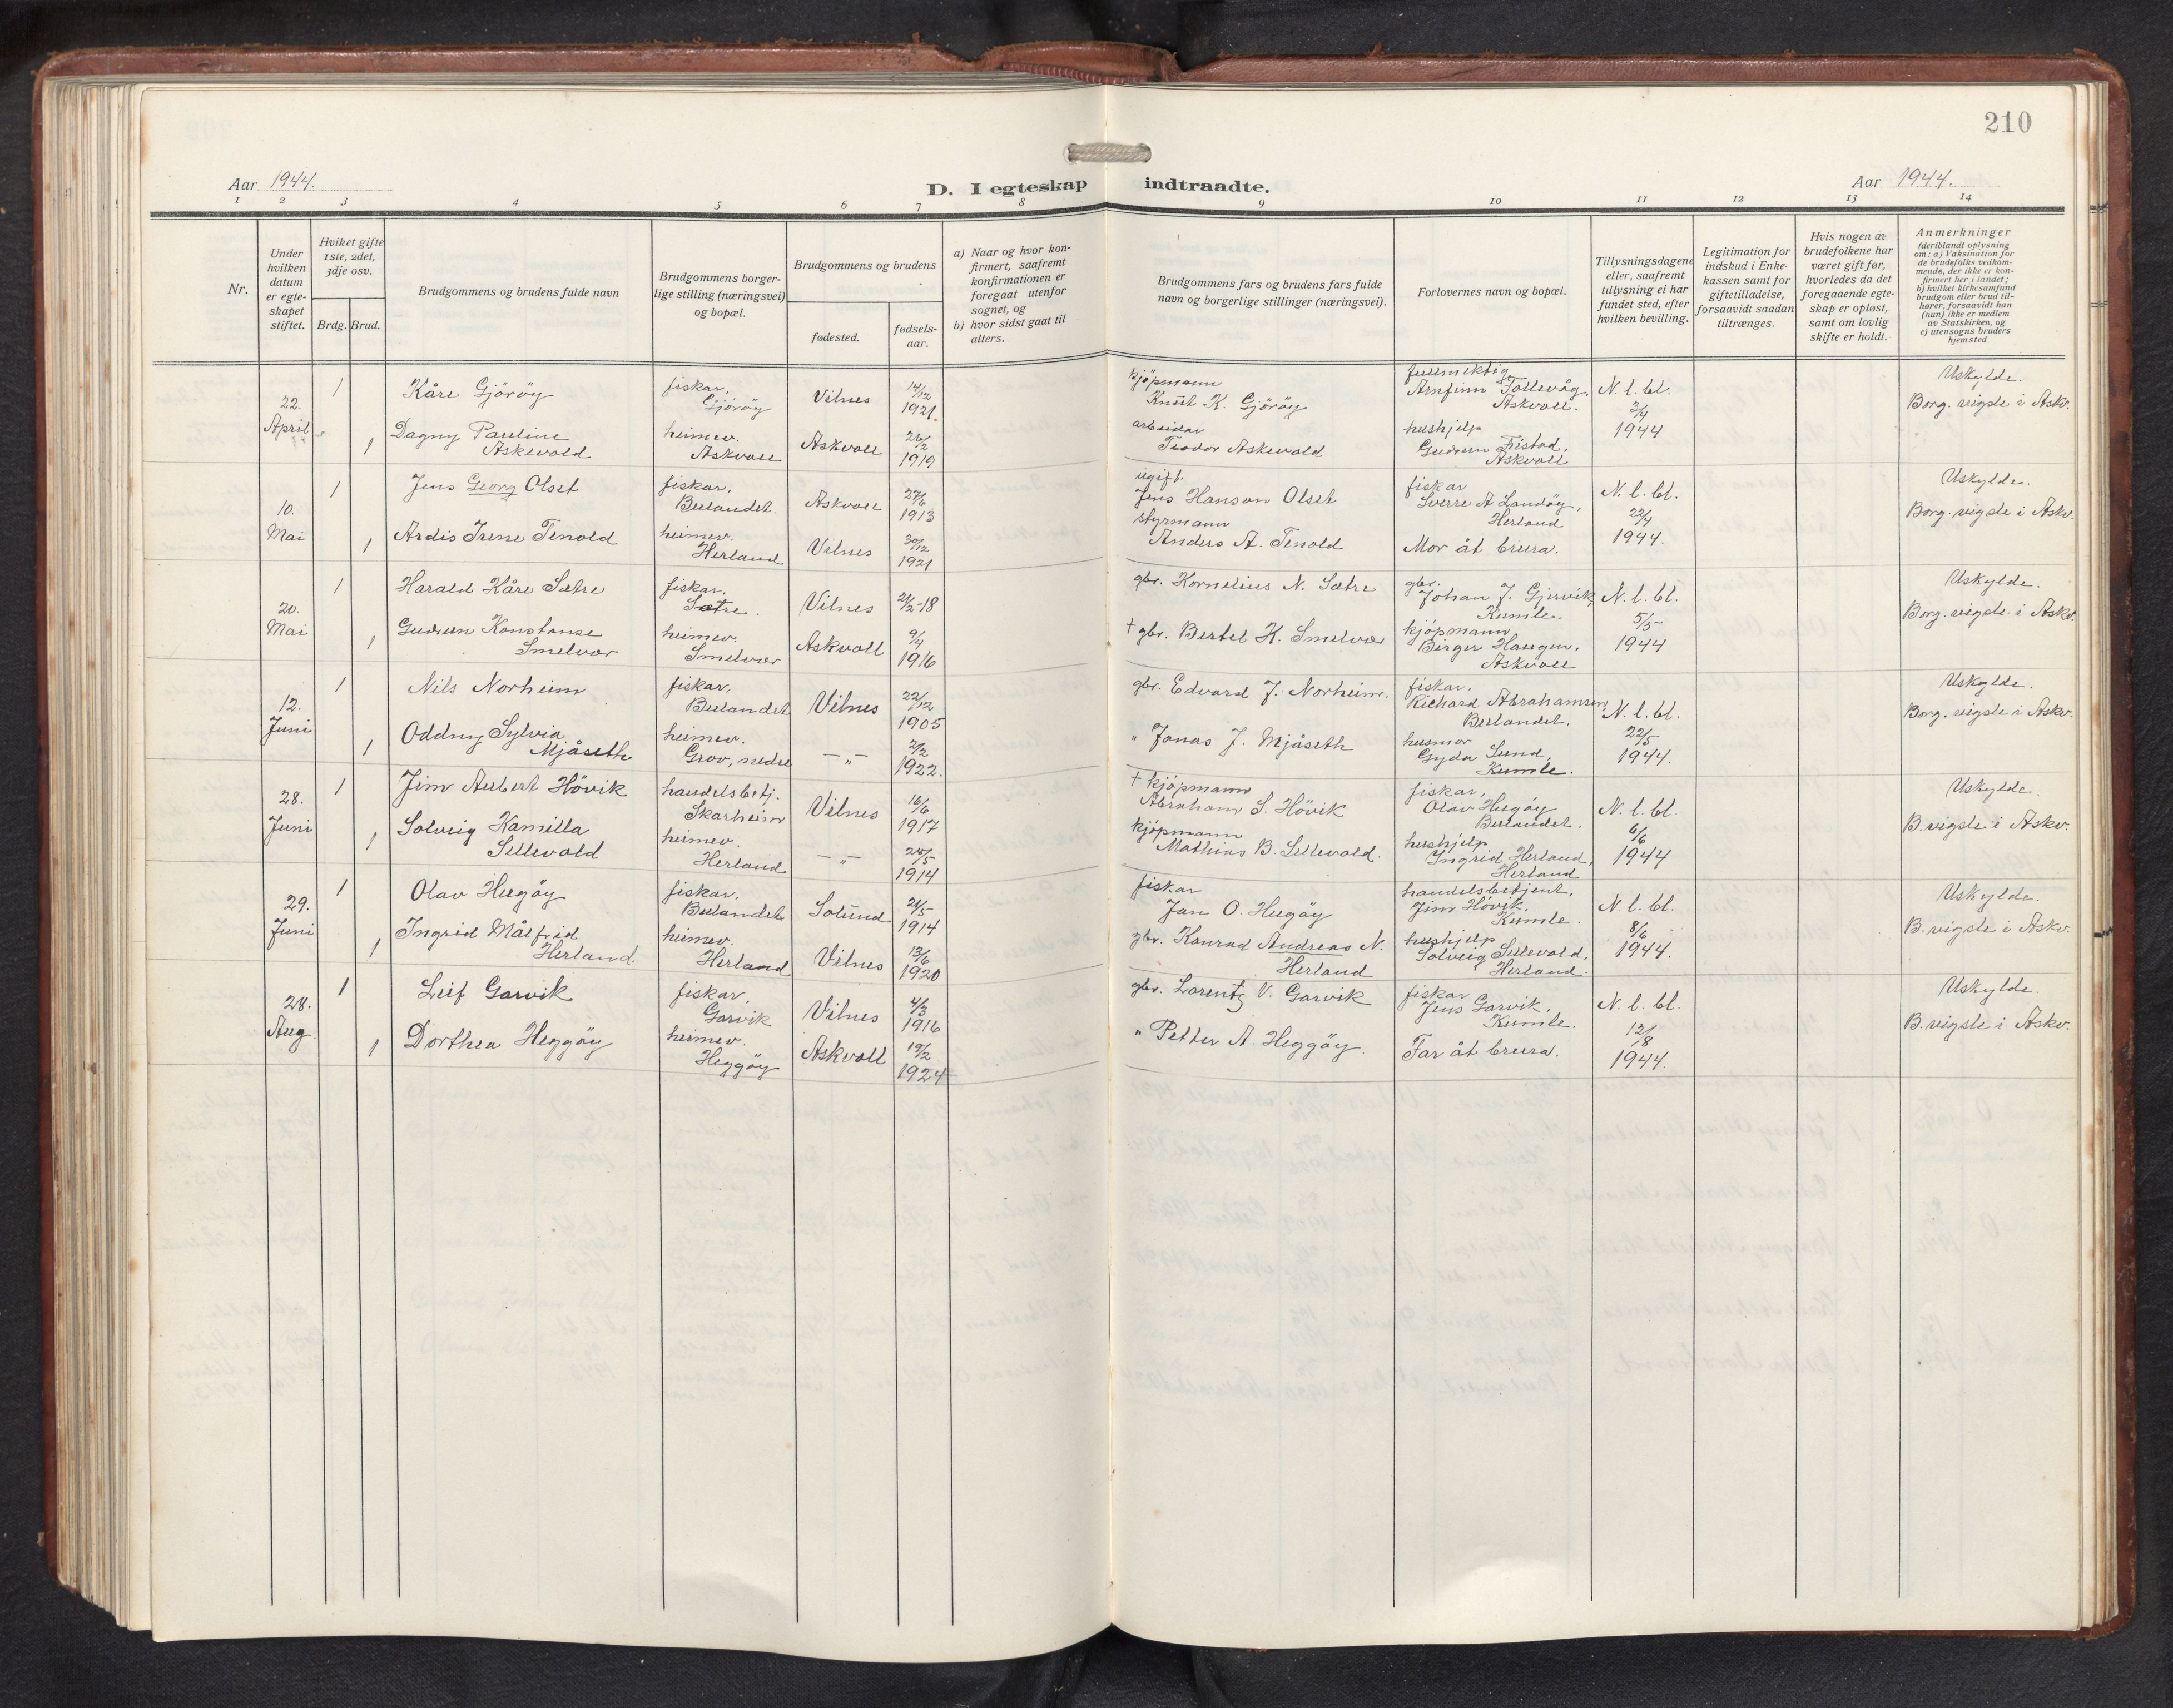 210
Aar 1944.
D. I egteskap indtraadte.
Aar 1944.
1 2 3 4 5 6 7 8 9 10 11 12 13 14
Nr.
Under hvilken datum er egteskapet stiftet.
Hviket gifte 1ste, 2det, 3dje osv.
Brdg. Brud.
Brudgommens og brudens fulde navn
Brudgommens borgerlige stilling (næringsvei) og bopæl.
Brudgommens og brudens
fødested.
fødselsaar.
a) Naar og hvor konfirmert, saafremt konfirmationen er foregaat utenfor sognet, og
b) hvor sidst gaat til alters.
Brudgommens fars og brudens fars fulde navn og borgerlige stillinger (næringsvei).
Forlovernes navn og bopæl.
Tillysningsdagene eller, saafremt tillysning ei har fundet sted, efter hvilken bevilling.
Legitimation for indskud i Enkekassen samt for giftetilladelse, forsaavidt saadan tiltrænges.
Hvis nogen av brudefolkene har været gift før, hvorledes da det foregaaende egteskap er opløst, samt om lovlig skifte er holdt.
Anmerkninger
(deriblandt oplysning om: a) Vaksination for de brudefolks vedkommende, der ikke er konfirmert her i landet; b) hvilket kirkesamfund brudgom eller brud tilhører, forsaavidt han (hun) ikke er medlem av Statskirken, og c) utensogns bruders hjemsted
22. April
1 Kåre Gjöröy fiskar, Gjöröy Vilnes 14/12 1921 kjöpmann Knut K. Gjöröy fullmektig Arnfinn Tollevåg, Askvoll. N. l. bl. 2/4 1944 Uskylde. Borg. vigsle i Askv.
1 Dagny Pauline Askevold heimev. Askvoll Askvoll 26/2 1919 arbeidar Teodor Askevold hushjelp Gudrun Fistad, Askvoll
10. Mai
1 Jens Georg Olset fiskar, Bulandet. Askvoll 27/6 1913 ugift. Jens Hanson Olset fiskar Sverre A Landöy, Herland N. l. bl. 22/4 1944. Uskylde. Borg. vigsle i Askv.
1 Ardis Irene Tenold heimev. Herland Vilnes 30/12 1921 styrmann Anders A. Tenold Mor åt brura.
20. Mai
1 Harald Kåre Sætre fiskar. Sætre. Vilnes 21/2-18 gbr. Kornelius N. Sætre gbr. Johan J. Gjervik, Kumle. N. l. bl. 5/5 1944 Uskylde. Borg. vigsle i Askv.
1 Gudrun Konstanse Smelvær heimev. Smelvær Askvoll 9/4 1916 + gbr. Bertel K. Smelvær kjöpmann Birger Haugen, Askvoll
12. Juni
1 Nils Norheim fiskar, Bulandet Vilnes 22/12 1905 gbr. Edvard J. Norheim. fiskar, Richard Abrahamsen, Bulandet. N. l. bl. 22/5 1944. Uskylde. Borg. vigsle i Askv.
1 Oddny Sylvia Mjåseth heimev. Grov, nedre —"— 2/2 1922. " Jonas J. Mjåseth husmor Gyda Sund, Kumle.
28. Juni
1 Jim Aubert Hövik handelsbetj. Skarheim Vilnes 16/6 1917 + kjöpmann Abraham S. Hövik fiskar, Olav Hugöy Bulandet. N. l. bl. 6/6 1944 Uskylde. B. vigsle i Askv.
1 Solveig Kamilla Sellevold heimev. Herland —"— 25/5 1914 kjöpmann Mathias B. Sellevold. hushjelp Ingrid Herland, Herland
29. Juni
1 Olav Hugöy fiskar. Bulandet Solund 21/5 1914 fiskar Jan O. Hugöy handelsbetjent, Jim Hövik, Kumle. N. l. bl. 8/6 1944. Uskylde. B. vigsle i Askv.
1 Ingrid Målfrid Herland. heimev. Herland Vilnes 13/6 1920 gbr. Konrad Andreas N. Herland hushjelp Solveig Sellevold, Herland.
28. Aug
1 Leif Garvik fiskar, Garvik Vilnes 4/3 1916 gbr. Lorentz V. Garvik fiskar Jens Garvik, Kumle. N. l. bl. 12/8 1944. Uskylde. B. vigsle i Askv.
1 Dorthea Heggöy heimev. Heggöy Askvoll 19/2 1924 " Petter A. Heggöy. Far åt brura.